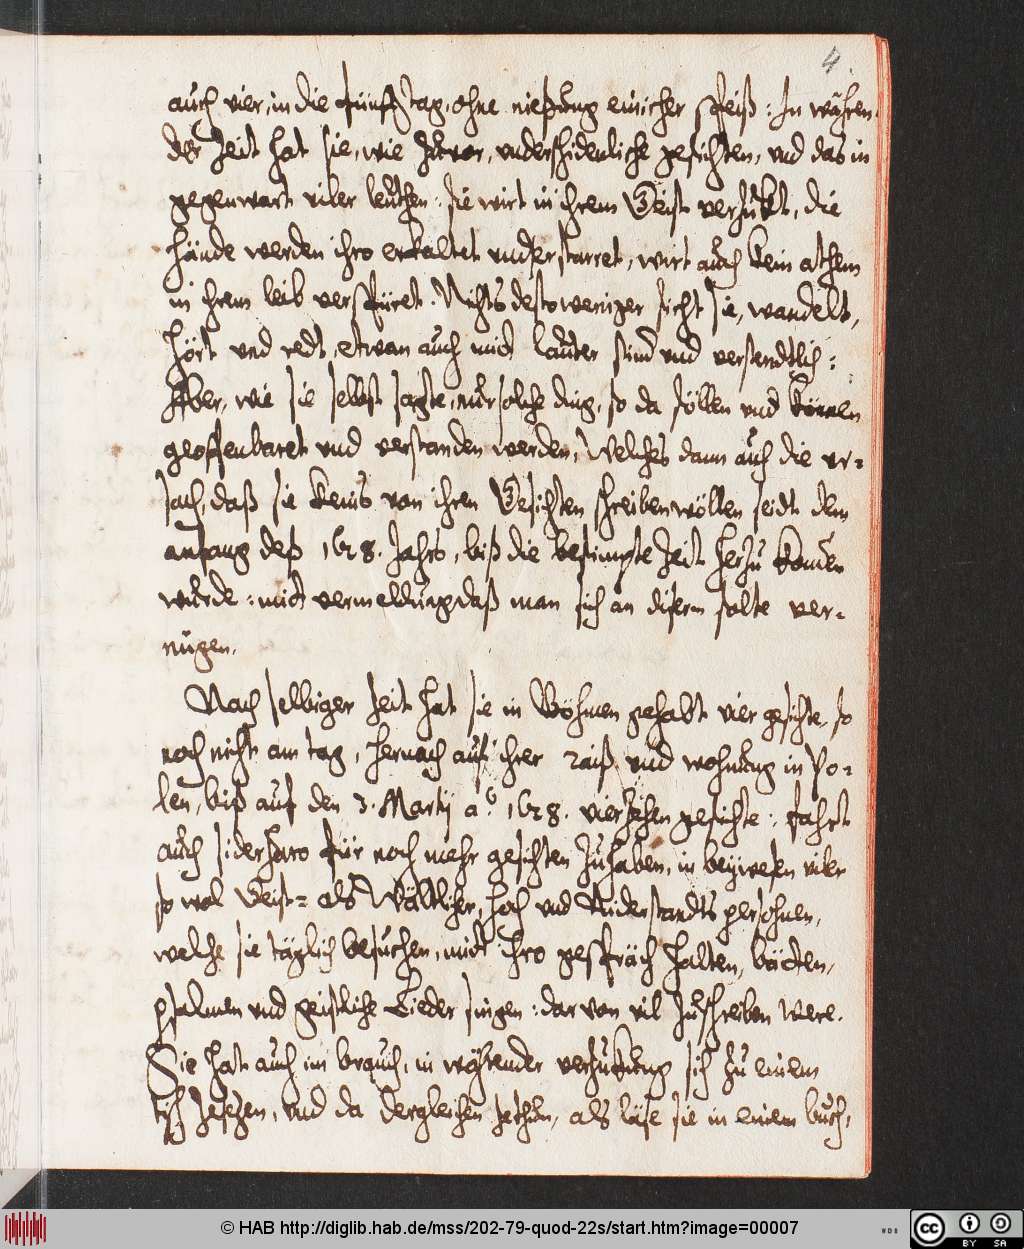 4
auch vier, in die fünff tag, ohne niessung einicher speiß: In währen-
der Zeit hat sie, wie zuvor, underschidenliche gesichten, und das in
gegenwart viler leüthen: sie wirt in ihrem Geist verzukt, die
hände werden ihro erkaltet und erstarret, wirt auch kein athem
in ihrem leib verspüret. Nichts destoweniger sicht sie, wandelt,
hört und redt, etwan auch mit lauter stim und verstendtlich:
Aber, wie sie selbst sagte, nur solche ding, so da söllen und können
geoffenbaret und verstanden werden, Welches dann auch die ur-
sach, daß sie keins von ihren Gesichten schreiben wöllen seidt dem
anfang deß 1628. Jahrs, biß die bestimpte Zeit herzu komen
wurde: mit vermeldung daß man sich an disem solte ver-
nügen.
Nach selbiger Zeit hat sie in Böhmen gehabt vier gesichte, so
noch nicht am tag, hernach auf ihrer raiß und wohnung in Po-
len, biß auf den 3. Martij ao. 1628. vierzehen gesichte: fahrt
auch siderharo für noch mehr gesichten zuhaben, in beywesen viler
so wol Geist- als Wältlicher, hoch und Niderstandts persohnen,
welche sie täglich besuchen, mit ihro gespräch halten, bätten,
psalmen und geistliche Lieder singen: dar von vil zuschreiben were.
Sie hat auch im brauch, in währender verzukung sich zu einem
tisch zesetzen, und da dergleichen zethun, als läse sie in einem buch,
© HAB http://diglib.hab.de/mss/202-79-quod-22s/start.htm?image=00007
WDB
cc BY SA